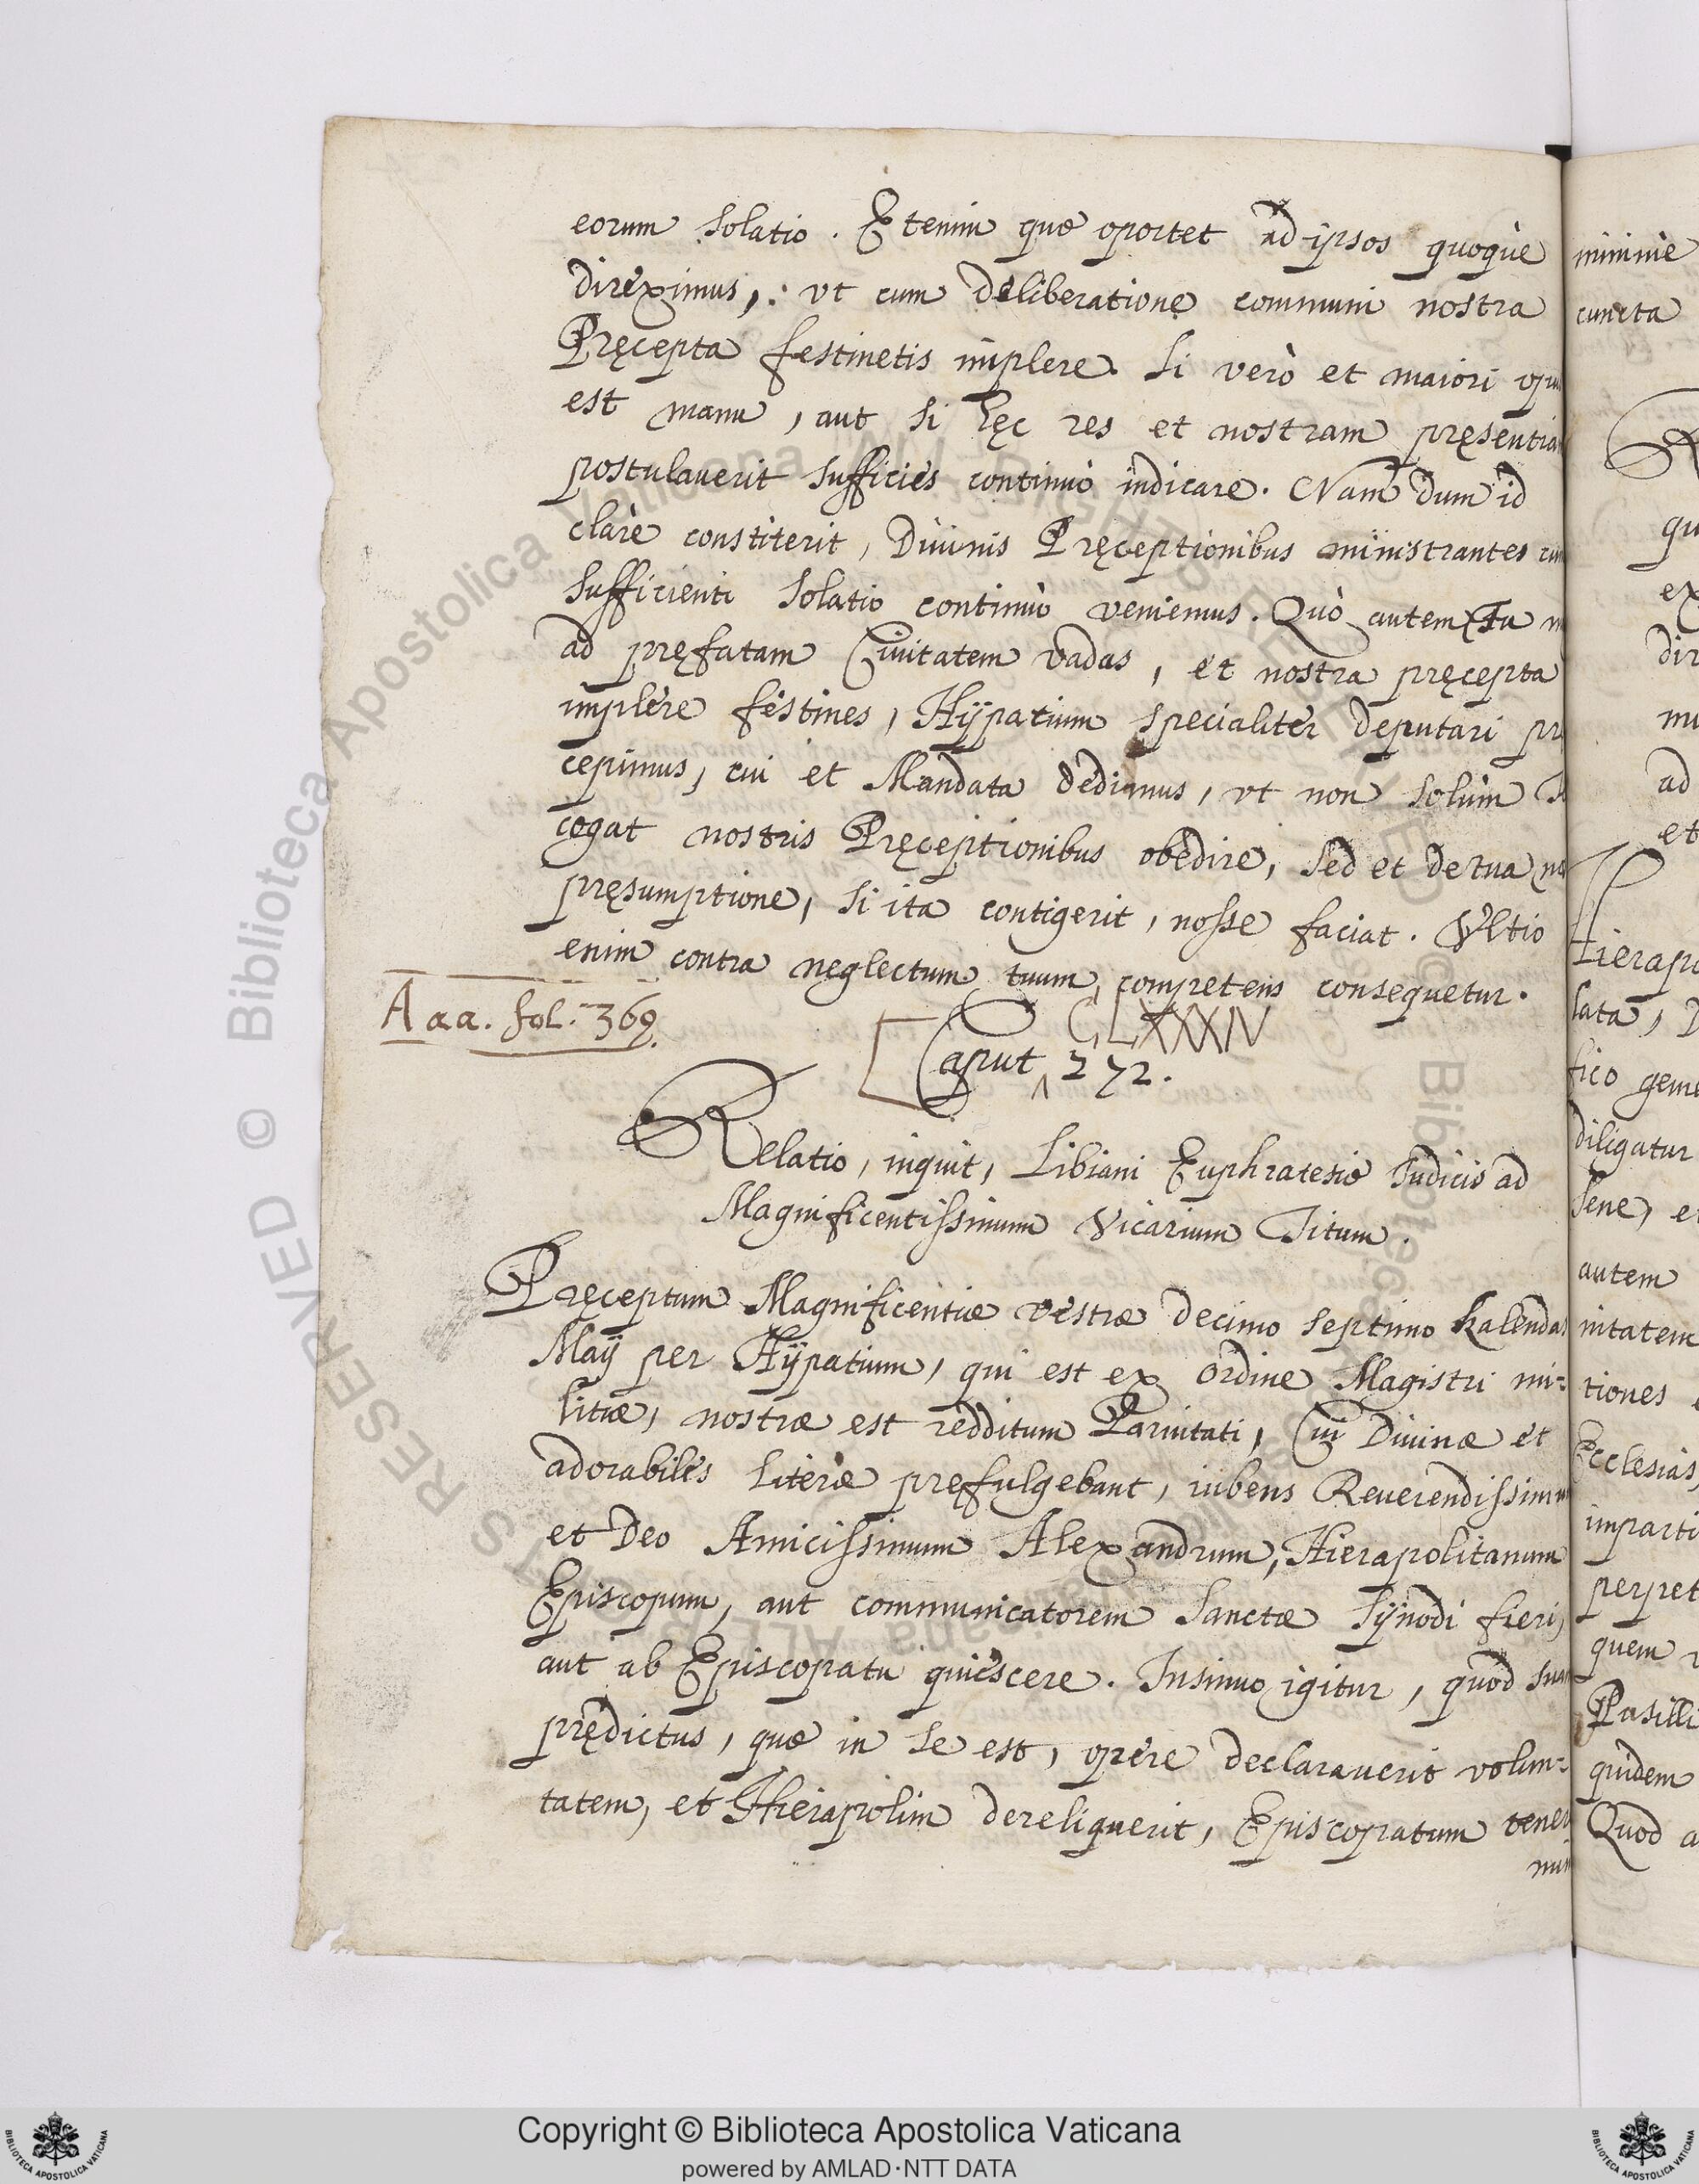 eorum solatio. Etenim quæ oportet ad ipsos quoque
direximus, ut cum deliberatione communi nostra
Pręcepta festinetis implere. Si verò et maiori opu
est manu, aut si hęc res et nostram pręsentia
postulauerit sufficies continuò indicare. Nam dum id
clare constiterit, Diuinis Pręceptionibus ministrantes cu
sufficienti solatio continuò veniemus. Quò autem Tu m
ad pręfatam Ciuitatem vadas, et nostra pręcepta
implere festines, Hÿpatium specialiter deputari pr
cepimus, cui et Mandata dedimus, vt non solùm T
cogat nostris Pręceptionibus obedire, sed et de tua no
pręsumptione, si ita contigerit, nosse faciat. Vltio
enim contra neglectum tuum, competens consequetur.
Aaa. fol. 369.
CLXXXIV
Caput 272.
Relatio, inquit, Libiani Euphratesiæ Iudicis ad
Magnificentissimum Vicarium Titum.
Pręceptum Magnificentiæ vestræ decimo septimo Kalendas
Maÿ per Hÿpatium, qui est ex ordine Magistri mi=
litiæ, nostræ est redditum Paruitati, Cui Diuinæ et
adorabiles literæ pręfulgebant, iubens Reuerendissimum
et Deo Amicissimum Alexandrum, Hierapolitanum
Episcopum, aut communicatorem sanctæ sÿnodi fieri,
aut ab Episcopatu quiescere. Insinuo igitur, quod sua
prędictus, quæ in se est, opere declarauerit volun=
tatem, et Hierapolim dereliquerit, Episcopatum tenen
num
minimè
cuncta
qu
ex
dir
mu
ad
et
Hierapo
lata, D
fico geme
diligatur
sene, et
autem
nitatem
tiones
Ecclesias,
imparti
perpet
quem v
Pusilli
quidem
Quod a
© Biblioteca Apostolica Vaticana ALL RIGHTS RESERVED
Copyright © Biblioteca Apostolica Vaticana
powered by AMLAD·NTT DATA
BIBLIOTECA APOSTOLICA VATICANA
BIBLIOTECA APOSTOLICA VATICANA